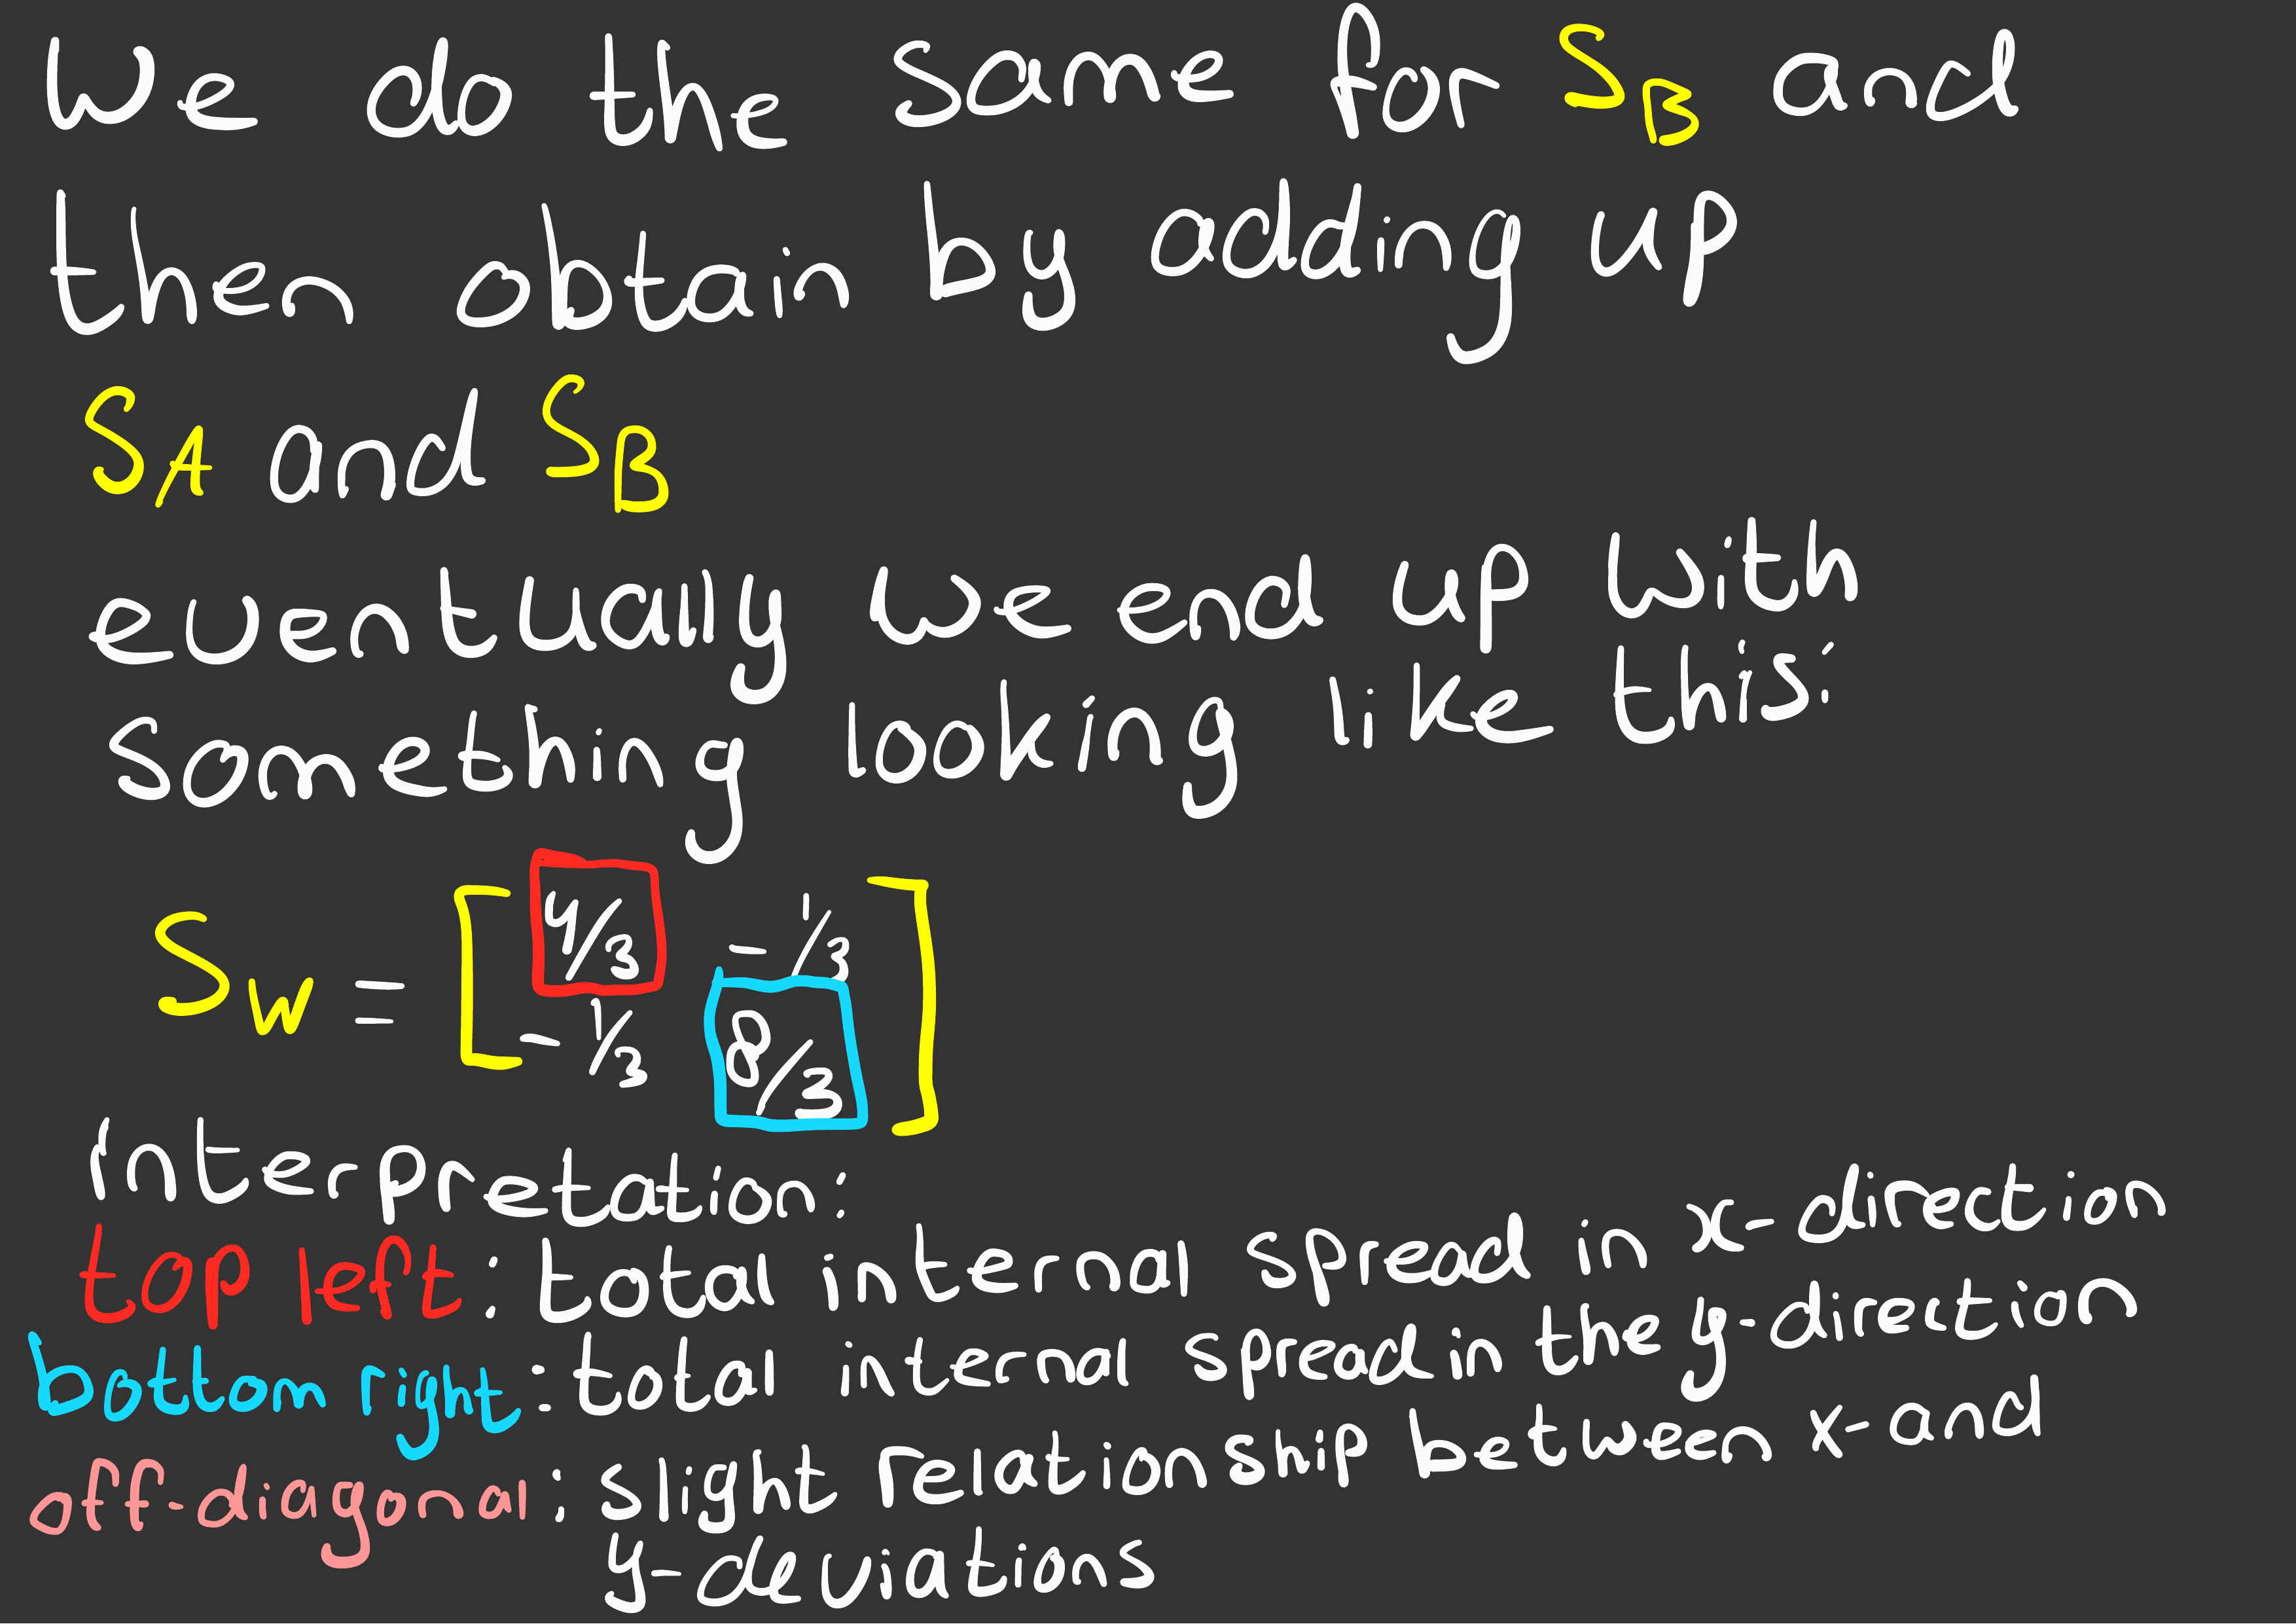 We do the same for S_B and
then obtain by adding up
S_A and S_B
eventually we end up with
something looking like this:
S_W = [ 4/3 -1/3
-1/3 8/3 ]
Interpretation:
top left: total internal spread in x-direction
bottom right: total internal spread in the y-direction
off-diagonal: slight relationship between x- and
y-deviations